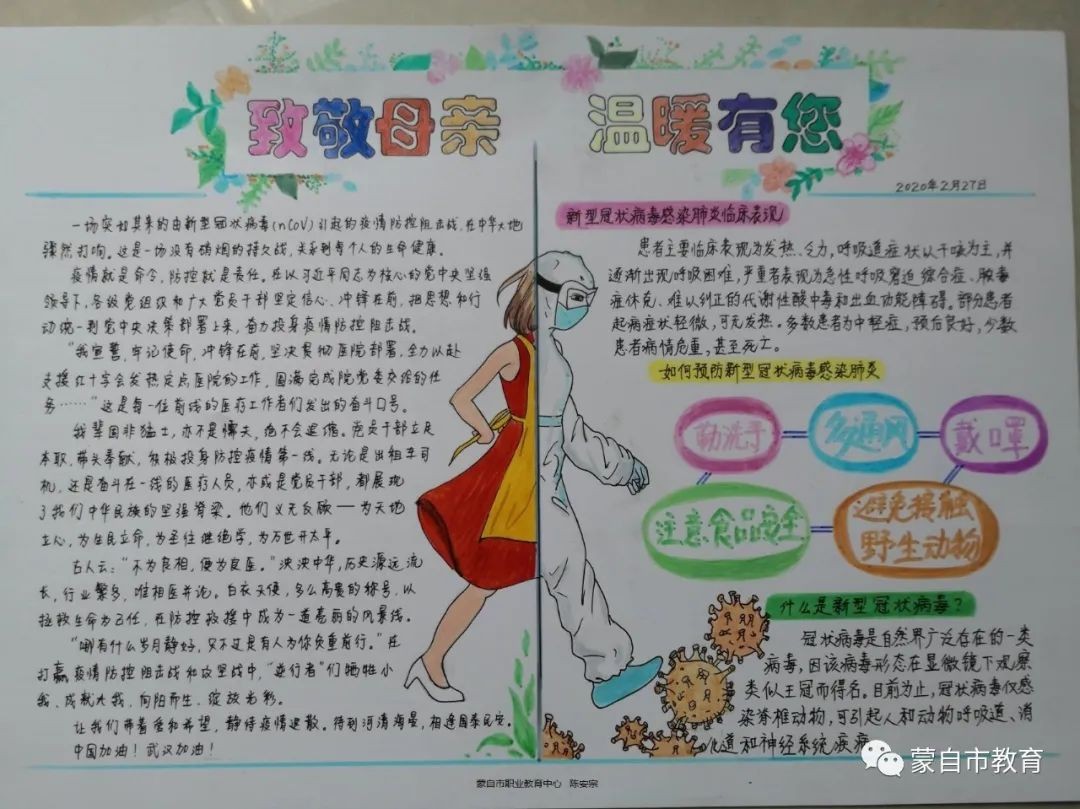 致敬母亲 温暖有您
2020年2月27日
一场突如其来的由新型冠状病毒(nCoV)引起的疫情防控阻击战,在中华大地
骤然打响。这是一场没有硝烟的持久战,关系到每个人的生命健康。
疫情就是命令,防控就是责任。在以习近平同志为核心的党中央坚强
领导下,各级党组织和广大党员干部坚定信心、冲锋在前,把思想和行
动统一到党中央决策部署上来,奋力投身疫情防控阻击战。
“我宣誓,牢记使命,冲锋在前,坚决贯彻医院部署,全力以赴
支援红十字会发热定点医院的工作,圆满完成院党委交给的任
务……”这是每一位前线的医疗工作者们发出的奋斗口号。
我辈固非猛士,亦不是懦夫,绝不会退缩。党员干部立足
本职,带头奉献,积极投身防控疫情第一线。无论是出租车司
机,还是奋斗在一线的医疗人员,亦或是党员干部,都展现
了我们中华民族的坚强脊梁。他们义无反顾——为天地
立心,为生民立命,为圣往继绝学,为万世开太平。
古人云:“不为良相,便为良医。”泱泱中华,历史源远流
长,行业繁多,唯相医并论。白衣天使,多么高贵的称号,以
拯救生命为己任,在防控救援中成为一道亮丽的风景线。
“哪有什么岁月静好,只不过是有人为你负重前行。”在
打赢疫情防控阻击战和攻坚战中,“逆行者”们牺牲小
我、成就大我、向阳而生、绽放光彩。
让我们带着爱和希望,静待疫情退散。待到河清海晏,相逢国泰民安。
中国加油!武汉加油!
新型冠状病毒感染肺炎临床表现
患者主要临床表现为发热、乏力,呼吸道症状以干咳为主,并
逐渐出现呼吸困难,严重者表现为急性呼吸窘迫综合症、脓毒
症休克、难以纠正的代谢性酸中毒和出血功能障碍。部分患者
起病症状轻微,可无发热。多数患者为中轻症,预后良好,少数
患者病情危重,甚至死亡。
如何预防新型冠状病毒感染肺炎
勤洗手 多通风 戴口罩
注意食品安全 避免接触
野生动物
什么是新型冠状病毒?
冠状病毒是自然界广泛存在的一类
病毒,因该病毒形态在显微镜下观察
类似王冠而得名。目前为止,冠状病毒仅感
染脊椎动物,可引起人和动物呼吸道、消
化道和神经系统疾病
蒙自市教育
蒙自市职业教育中心 陈安宗